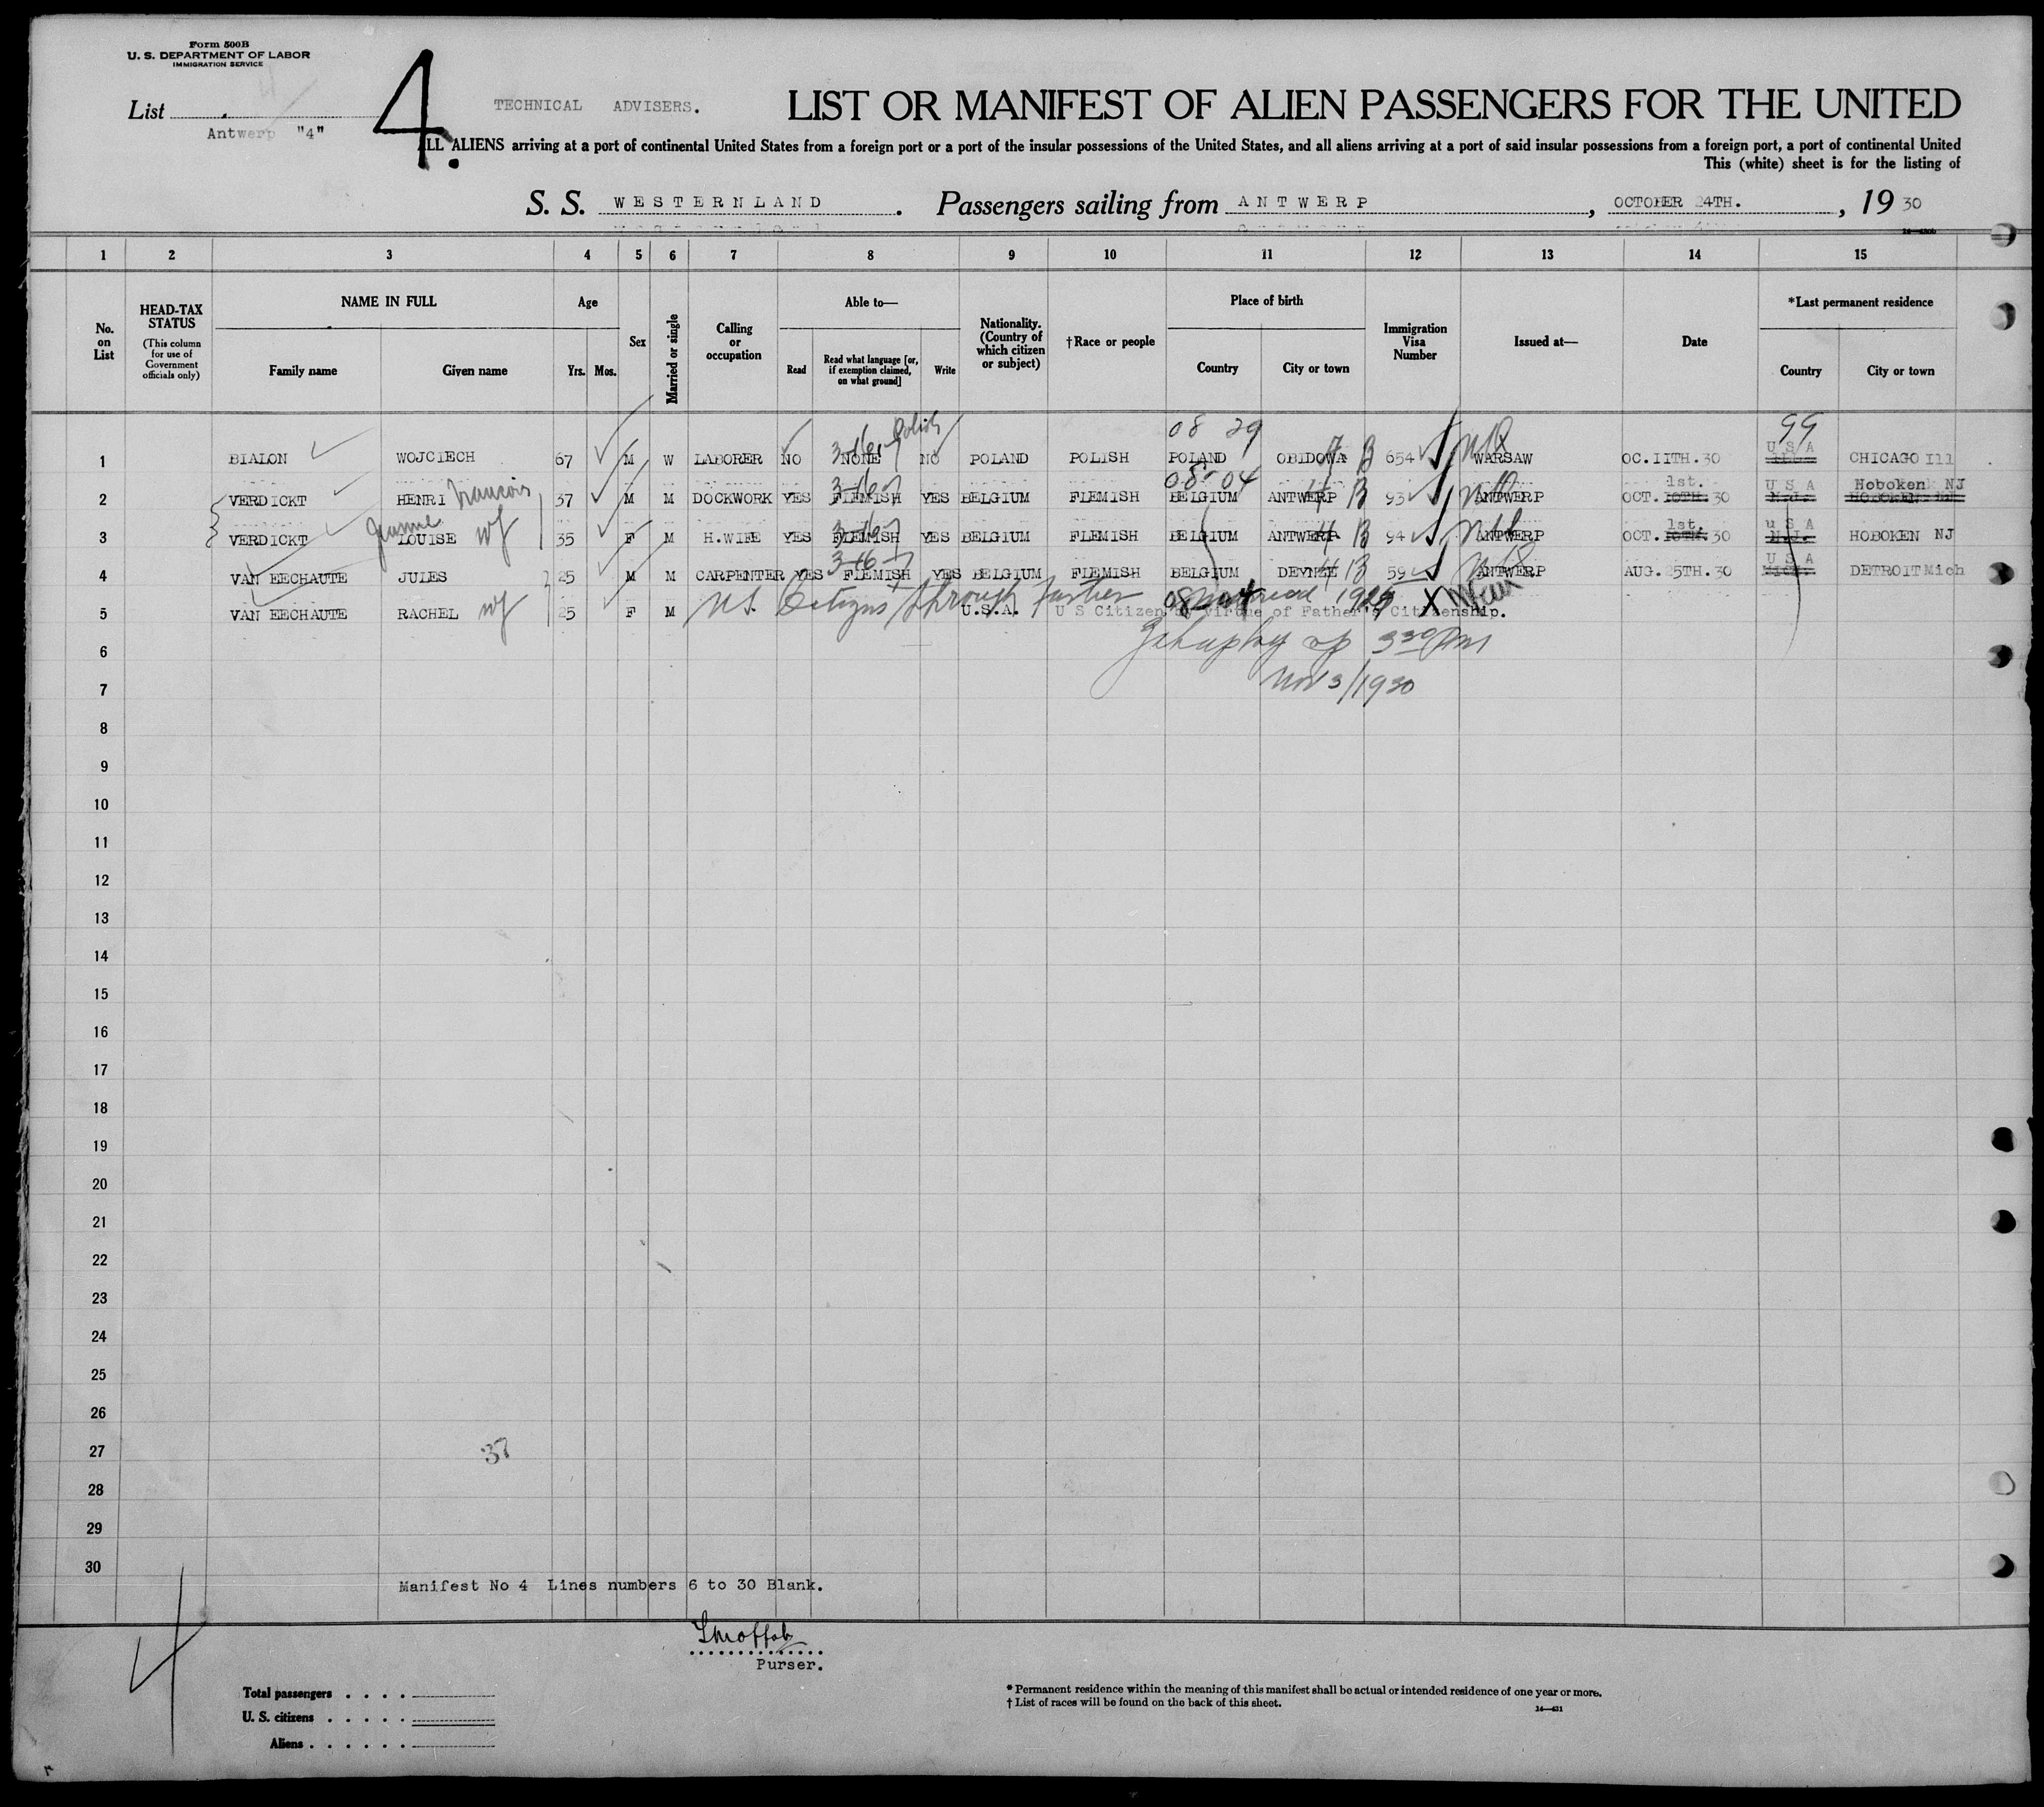 Form 500B
U. S. DEPARTMENT OF LABOR
IMMIGRATION SERVICE
List
Antwerp "4"
4.
TECHNICAL ADVISERS.
LIST OR MANIFEST OF ALIEN PASSENGERS FOR THE UNITED
ALL ALIENS arriving at a port of continental United States from a foreign port or a port of the insular possessions of the United States, and all aliens arriving at a port of said insular possessions from a foreign port, a port of continental United
This (white) sheet is for the listing of
S. S. WESTERNLAND. Passengers sailing from ANTWERP, OCTOBER 24TH., 19 30
1 2 3 4 5 6 7 8 9 10 11 12 13 14 15
No. on List
HEAD-TAX STATUS
(This column for use of Government officials only)
NAME IN FULL
Family name Given name
Age
Yrs. Mos.
Sex
Married or single
Calling or occupation
Able to—
Read Read what language [or, if exemption claimed, on what ground] Write
Nationality. (Country of which citizen or subject)
†Race or people
Place of birth
Country City or town
Immigration Visa Number
Issued at—
Date
*Last permanent residence
Country City or town
Polish 08 29 99
1 BIALON WOJCIECH 67 M W LABORER NO NONE NO POLAND POLISH POLAND OBIDOWA B 654 WARSAW OC.11TH.30 U S A CHICAGO Ill
08-04
2 VERDICKT HENRI Francois 37 M M DOCKWORK YES FLEMISH YES BELGIUM FLEMISH BELGIUM ANTWERP B 93 ANTWERP OCT. 10TH. 1st. 30 N.J. U S A HOBOKEN Hoboken NJ
3 VERDICKT LOUISE wf 35 F M H.WIFE YES FLEMISH YES BELGIUM FLEMISH BELGIUM ANTWERP B 94 ANTWERP OCT. 10TH. 1st. 30 N.J. U S A HOBOKEN NJ
4 VAN EECHAUTE JULES 25 M M CARPENTER YES FLEMISH YES BELGIUM FLEMISH BELGIUM DEYNZE B 59 ANTWERP AUG.25TH.30 Mich. U S A DETROIT Mich
US Citizens through father married 1929
5 VAN EECHAUTE RACHEL wf 25 F M U.S.A. 08 04 U S Citizen by virtue of Father's Citizenship.
3 30 PM
6
Nov 3/1930
7
8
9
10
11
12
13
14
15
16
17
18
19
20
21
22
23
24
25
26
27
37
28
29
30
Manifest No 4 Lines numbers 6 to 30 Blank.
4
Purser.
Total passengers
U. S. citizens
Aliens
* Permanent residence within the meaning of this manifest shall be actual or intended residence of one year or more.
† List of races will be found on the back of this sheet.